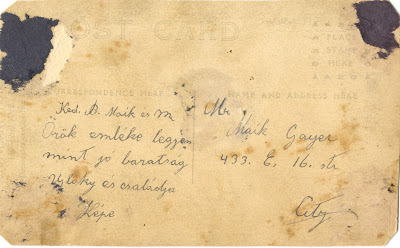 POST CARD
PLACE
STAMP
HERE
CORRESPONDENCE HERE
NAME AND ADDRESS HERE
Ked. B. Maik es M
Örök emléke legyen
mint jo baratsag
és családja
Képe
Mr
Maik Gayer
433. E. 16. str
City